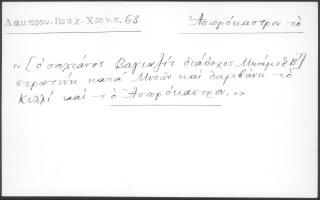 Λαμπρου, Βραχ. Χρον. σ. 63
Ἀσπρόκαστρον τὸ
«[ὁ σουλτάνος Βαγιαζὴτ διάδοχος Μωάμεθ Β΄]
στρατεύει κατὰ Μυσῶν καὶ λαμβάνει τὸ
Κελλὶ καὶ τὸ Ἀσπρόκαστρον.»